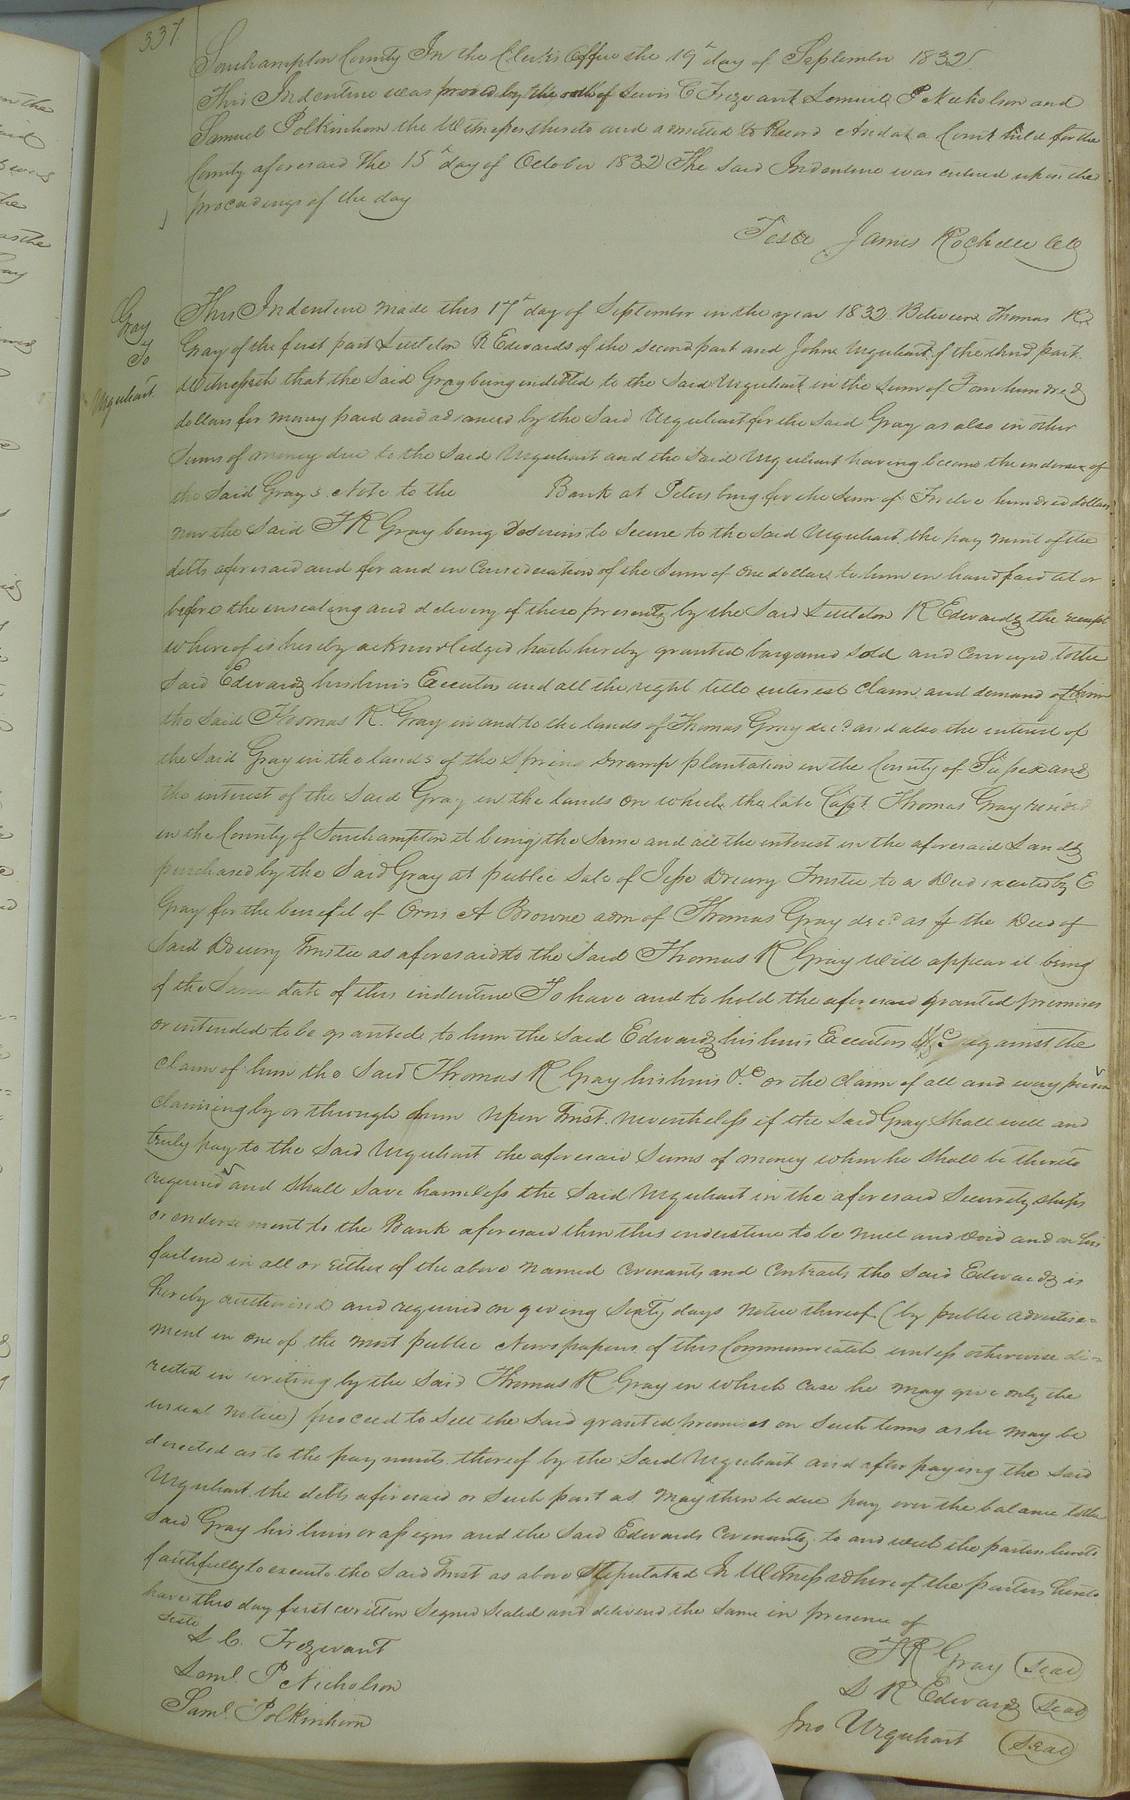 337
Southampton County In the Clerk's Office the 19th day of September 1832
This Indenture was proved by the oath of Lewis C Trezevant Lemuel P Nicholson and
Samuel Polkinhorn the Witnesses thereto and admitted to Record And at a Court held for the
County aforesaid the 15th day of October 1832 The said Indenture was entered upon the
proceedings of the day
Teste James Rochelle CC
Gray
To
Urquhart
This Indenture made this 17th day of September in the year 1832 Between Thomas R
Gray of the first part Littleton R Edwards of the second part and John Urquhart of the third part.
Witnesseth that the Said Gray being indebted to the Said Urquhart in the sum of Four hundred
dollars for money paid and advanced by the Said Urquhart for the said Gray as also in other
Sums of money due to the Said Urquhart and the Said Urquhart having become the endorser of
the Said Gray's Note to the Bank at Petersburg for the Sum of Twelve hundred dollars
now the Said T R Gray being Desirous to Secure to the Said Urquhart the payment of the
debts aforesaid and for and in Consideration of the Sum of one dollar to him in hand paid at or
before the ensealing and delivery of these presents by the Said Littleton R Edwards the receipt
whereof is hereby acknowledged hath hereby granted bargained sold and Conveyed to the
Said Edwards his heirs Executors and all the right title interest Claim and demand of him
the Said Thomas R. Gray in and to the lands of Thomas Gray decd and also the interest of
the Said Gray in the lands of the Spring Swamp plantation in the County of Sussex and
the interest of the Said Gray in the lands on which the late Capt. Thomas Gray resided
in the County of Southampton it being the Same and all the interest in the aforesaid Lands
purchased by the Said Gray at public Sale of Jesse Drewry Trustee to a Deed executed by E
Gray for the benefit of Oris A Browne adm of Thomas Gray decd as by the Deed of
Said Drewry Trustee as aforesaid to the Said Thomas R Gray will appear it being
of the Same date of this indenture To have and to hold the aforesaid granted premises
or intended to be granted to him the Said Edwards his heirs Executors &c against the
claim of him the Said Thomas R Gray his heirs &c or the claim of all and every person
claiming by or through him Upon Trust. Nevertheless if the Said Gray Shall well and
truly pay to the Said Urquhart the aforesaid Sums of money when he shall be thereto
required and Shall Save harmless the Said Urquhart in the aforesaid Securityships
or endorsement to the Bank aforesaid then this indenture to be null and void and on his
failure in all or either of the above named Covenants and Contracts the Said Edwards is
hereby authorised and required on giving Sixty days notice thereof (by public advertise=
ment in one of the most public Newspapers of this Commonwealth unless otherwise di=
rected in writing by the Said Thomas R Gray in which Case he may give only the
usual notice) proceed to Sell the Said granted premises on Such terms as he may be
directed as to the payments thereof by the Said Urquhart and after paying the Said
Urquhart the debts aforesaid or Such part as May then be due pay over the balance to the
Said Gray his heirs or assigns and the Said Edwards Covenants to and with the parties hereto
faithfully to execute the Said Trust as above Stipulated In Witness whereof the parties hereto
have this day first written Signed Sealed and delivered the same in presence of
Teste
L C. Trezevant
Leml. P Nicholson
Saml. Polkinhorn
T R Gray (Seal)
L R Edwards (Seal)
Jno Urquhart (Seal)